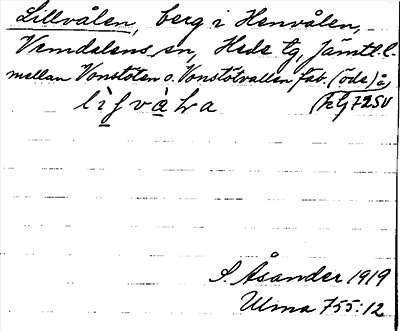 Lillvålen, berg i Henvålen,
Vemdalens sn, Hede tg, Jämtl. l.
mellan Vonstöten o. Vonstötvallen fäb. (öde)
S. Åsander 1919
Ulma 755:12